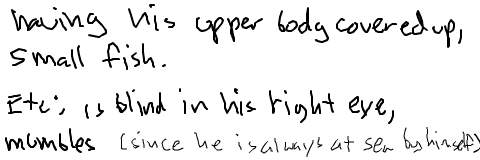 having his upper body covered up,
small fish.
Etc: is blind in his right eye,
mumbles (since he is always at sea by himself)